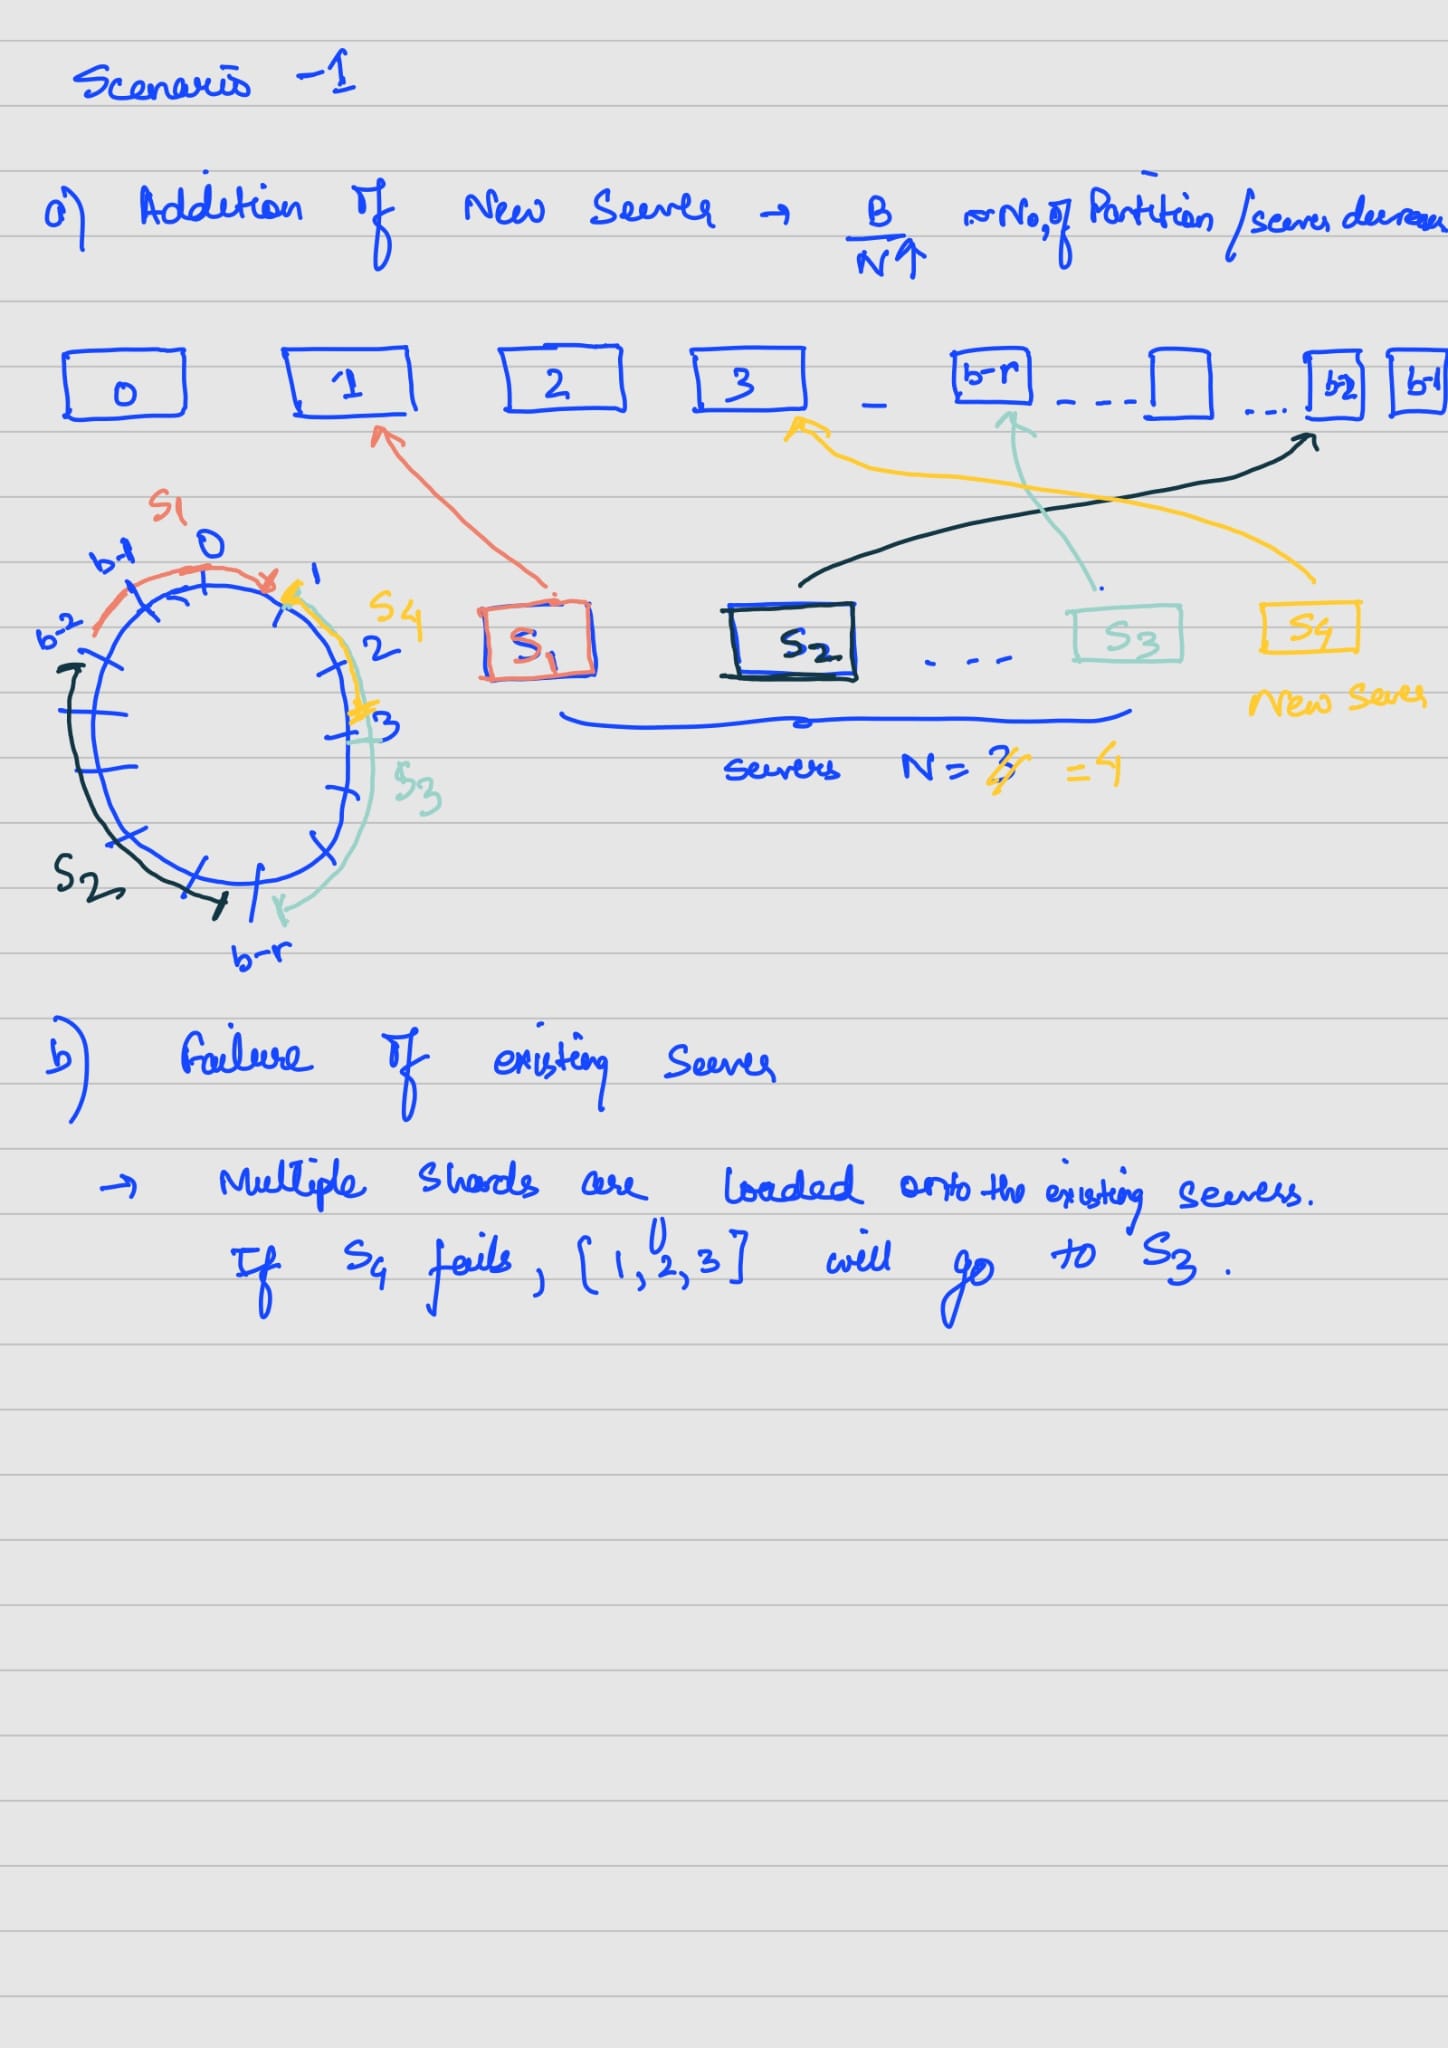 Scenario -1
a) Addition of New Server → B/N↑ ≈ No. of Partition / server decreases
0 1 2 3 - b-r ---- ... b-2 b-1
S1
b-1 0 1
S4
b-2 2
S1 S2 ... S3 S4
New Server
3
servers N = 3 = 4
S3
S2
b-r
b) Failure of existing Server
→ Multiple shards are loaded onto the existing servers.
If S4 fails, [1, 2, 3] will go to S3.